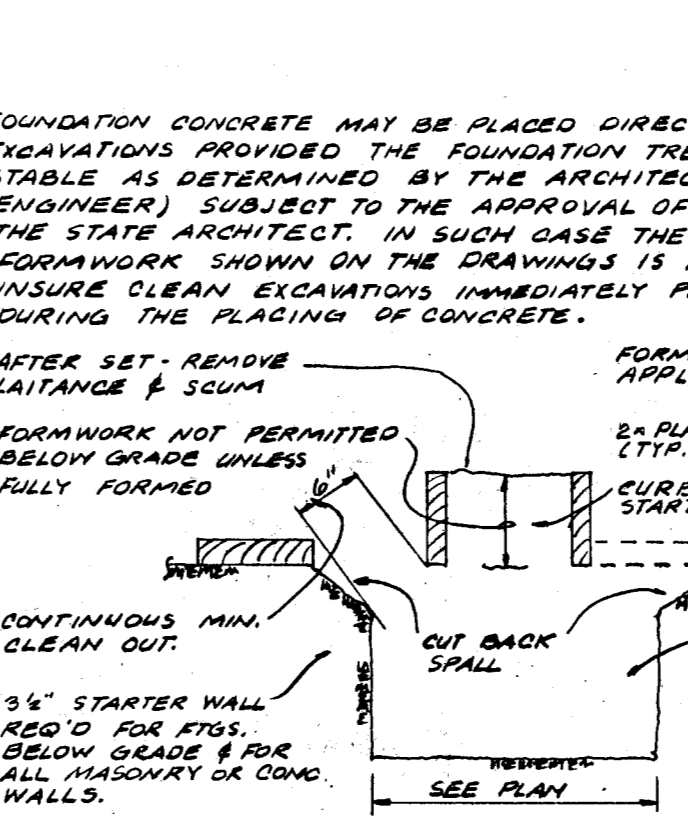 OUNDATION CONCRETE MAY BE PLACED DIREC
EXCAVATIONS PROVIDED THE FOUNDATION TRE
STABLE AS DETERMINED BY THE ARCHITEC
ENGINEER) SUBJECT TO THE APPROVAL OF
THE STATE ARCHITECT. IN SUCH CASE THE
FORMWORK SHOWN ON THE DRAWINGS IS
INSURE CLEAN EXCAVATIONS IMMEDIATELY P
DURING THE PLACING OF CONCRETE.
AFTER SET - REMOVE
LAITANCE & SCUM
FORM
APPL
FORMWORK NOT PERMITTED
BELOW GRADE UNLESS
FULLY FORMED
2x PL
(TYP.
6"
CURB
START
CONTINUOUS MIN.
CLEAN OUT.
CUT BACK
SPALL
3½" STARTER WALL
REQ'D FOR FTGS.
BELOW GRADE & FOR
ALL MASONRY OR CONC.
WALLS.
SEE PLAN